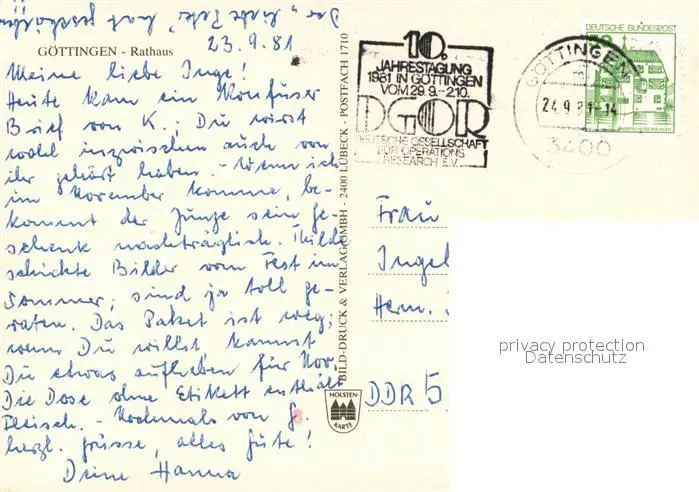 Der "liebe Peter" hat geschrieben
GÖTTINGEN - Rathaus
23.9.81
Meine liebe Inge!
Heute kam ein konfuser
Brief von K.. Du wirst
wohl inzwischen auch von
ihr gehört haben. - Wenn ich
im November komme, be-
kommt der Junge sein Ge-
schenk nachträglich. Thilde
schickte Bilder vom Fest im
Sommer; sind ja toll ge-
raten. Das Paket ist weg;
wenn Du willst, kannst
Du etwas aufheben für Nov.
Die Dose ohne Etikett enthält
Fleisch. - Nochmals von G.
herzl. Grüsse, alles Gute!
Deine Hanna
BILD-DRUCK & VERLAG GMBH - 2400 LÜBECK - POSTFACH 1710
HOLSTEN-
KARTE
10.
JAHRESTAGUNG
1981 IN GÖTTINGEN
VOM 29.9.-2.10.
DGOR
DEUTSCHE GESELLSCHAFT
FÜR OPERATIONS
RESEARCH E.V.
GÖTTINGEN
24.9.81-14
3400
DEUTSCHE BUNDESPOST
Frau
Ingel
Herm.
DDR 5
privacy protection
Datenschutz